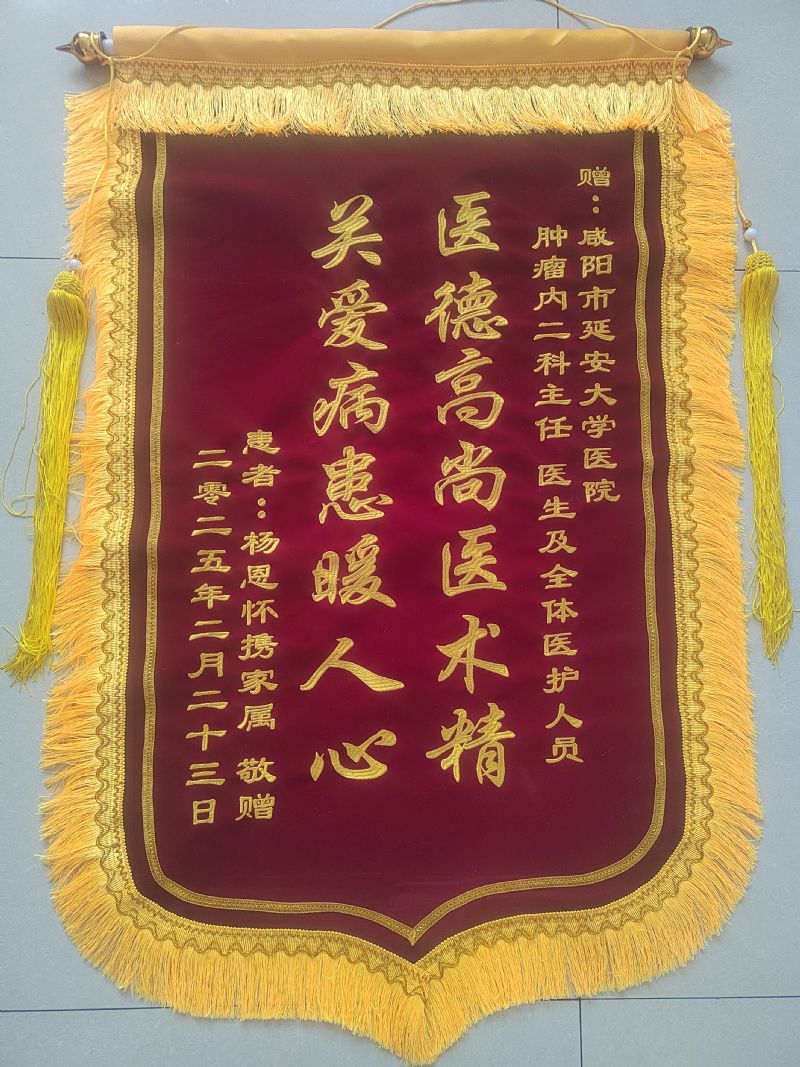 赠：咸阳市延安大学医院
肿瘤内二科主任 医生及全体医护人员
医德高尚医术精
关爱病患暖人心
患者：杨恩怀携家属 敬赠
二零二五年二月二十三日